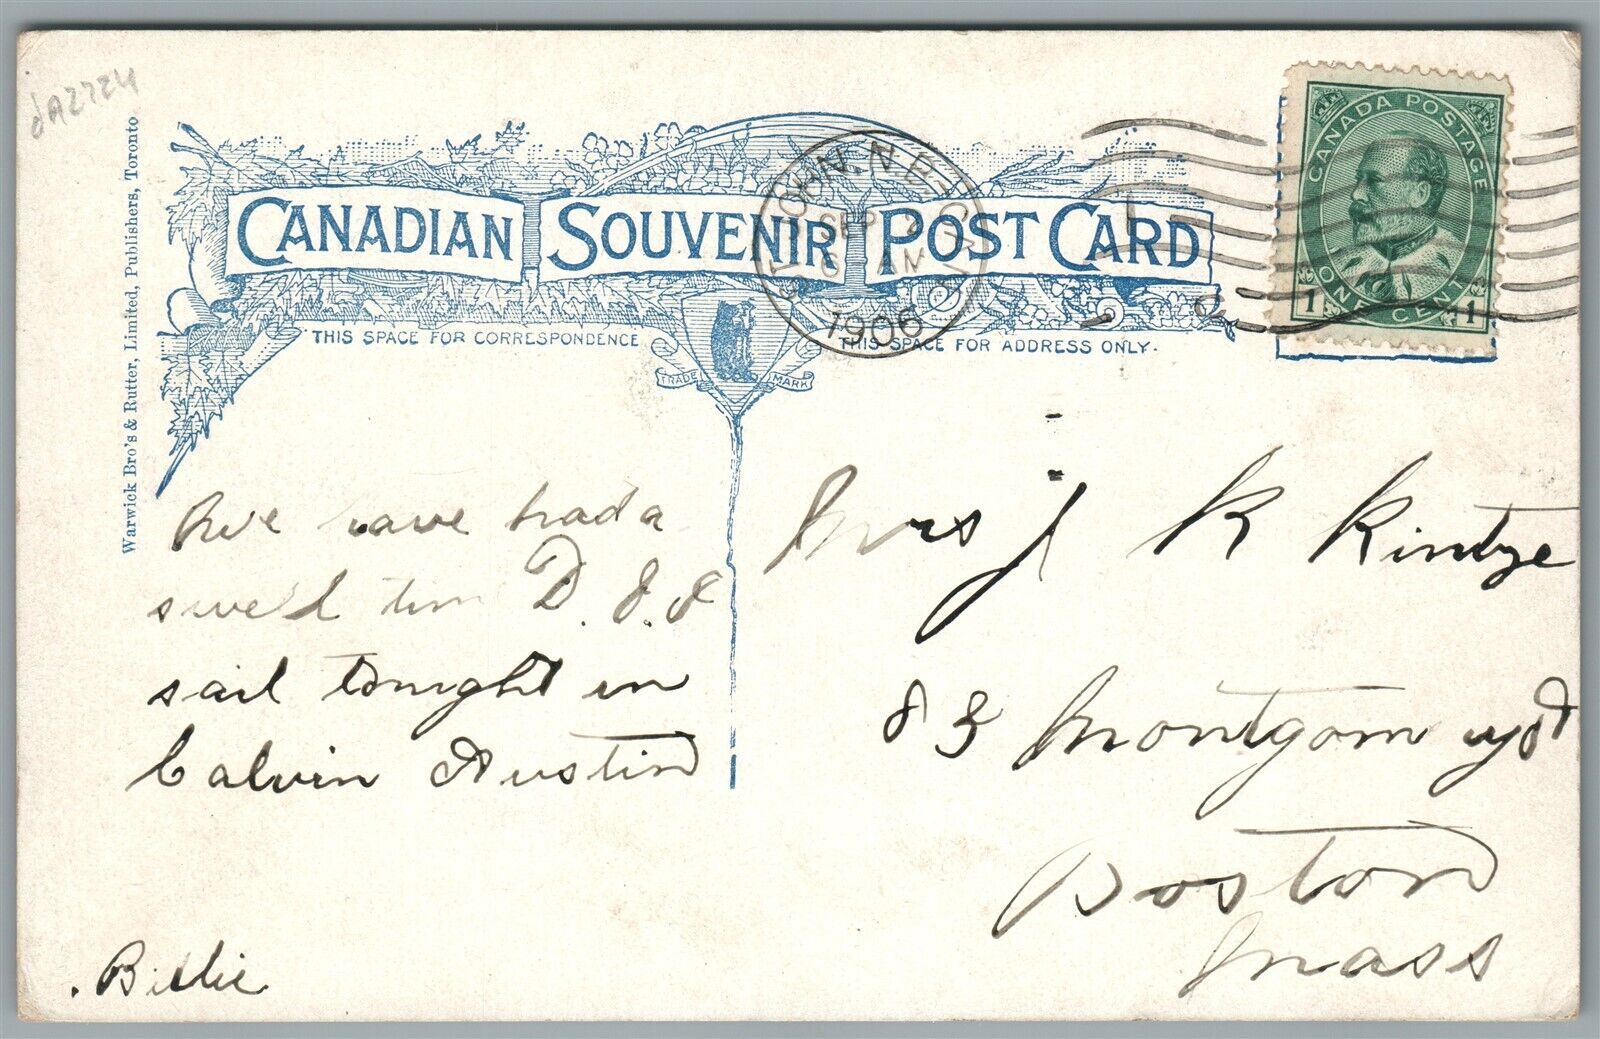 dA2724
Warwick Bro's & Rutter, Limited, Publishers, Toronto
CANADIAN SOUVENIR POST CARD
THIS SPACE FOR CORRESPONDENCE
THIS SPACE FOR ADDRESS ONLY.
TRADE MARK
ST. JOHN, N.B.
SEP 2
AM
1906
CANADA POSTAGE
1 ONE CENT 1
We have had a
swell time D. J. &
sail tonight in
Calvin Austin
Billie
Mrs J K Kintze
83 Montgomery St
Boston
Mass